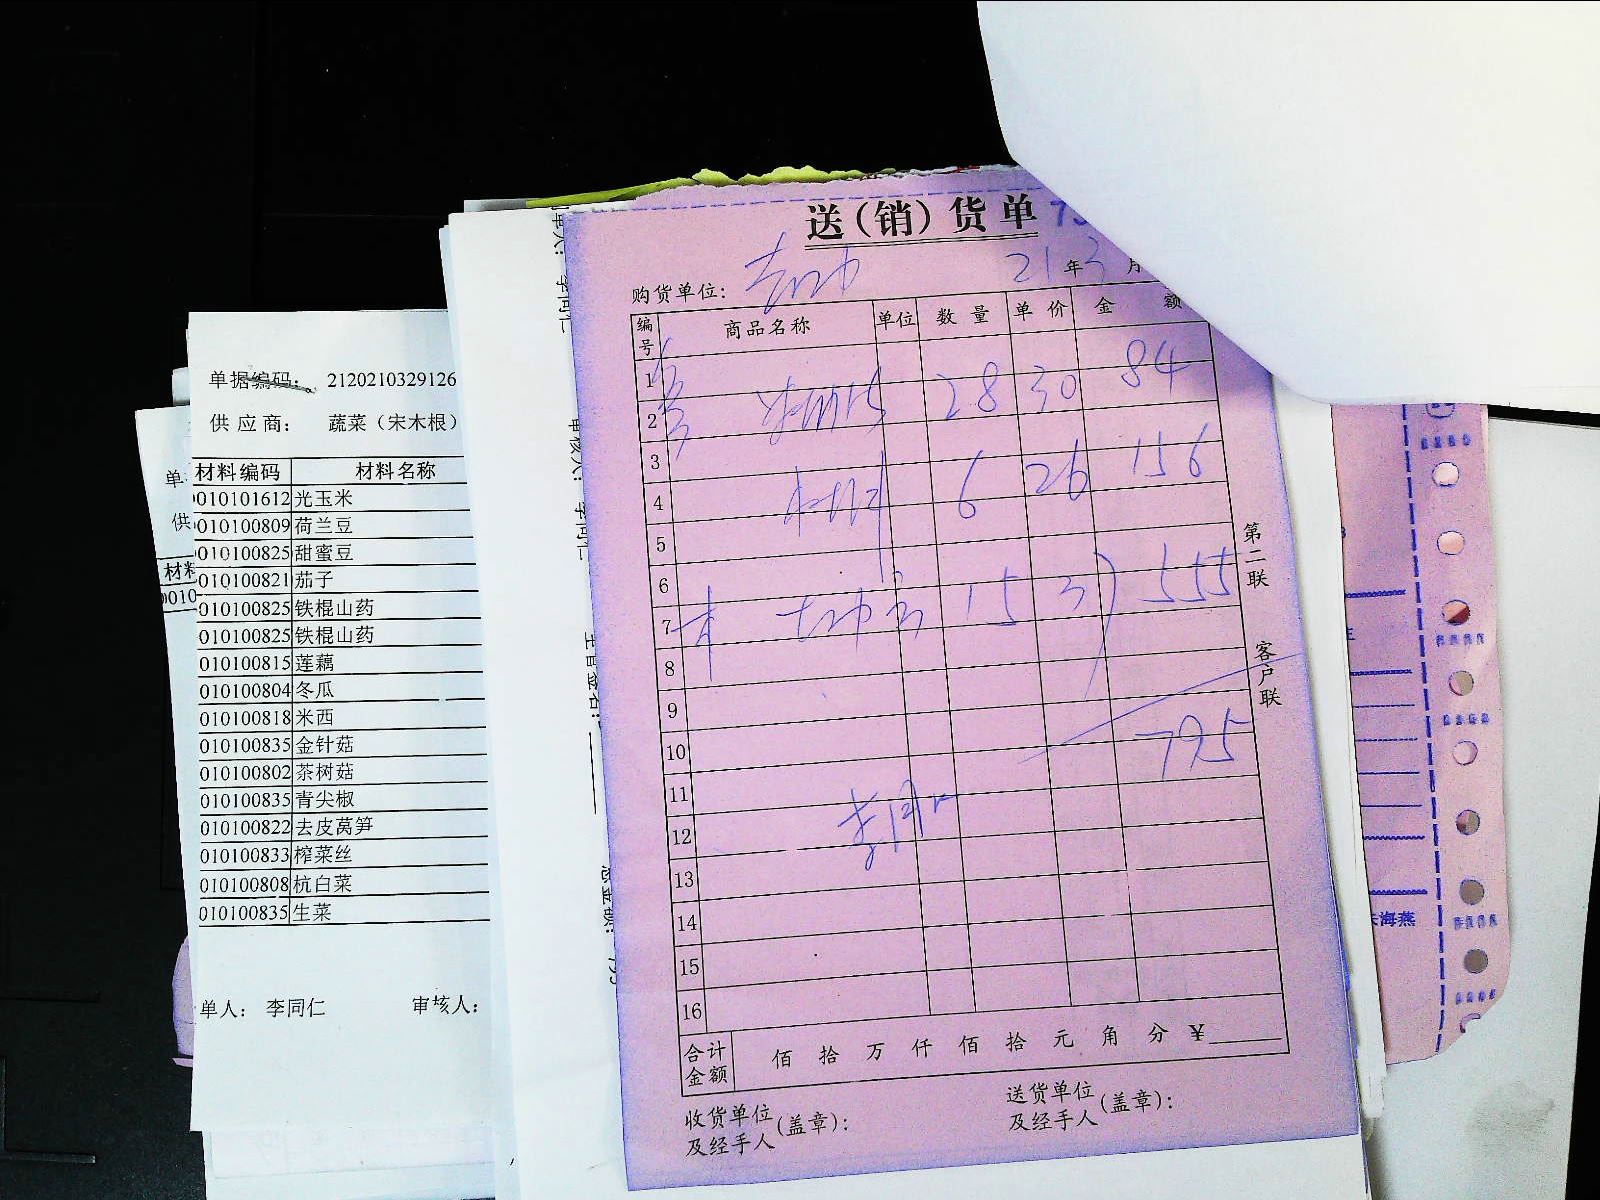 单据编码： 2120210329126
供应商： 蔬菜（宋木根）
材料编码 材料名称
010101612 光玉米
010100809 荷兰豆
010100825 甜蜜豆
010100821 茄子
010100825 铁棍山药
010100825 铁棍山药
010100815 莲藕
010100804 冬瓜
010100818 米西
010100835 金针菇
010100802 茶树菇
010100835 青尖椒
010100822 去皮莴笋
010100833 榨菜丝
010100808 杭白菜
010100835 生菜
单人： 李同仁 审核人：
单
供
材料
0010
送（销）货单
购货单位： 21年3月
编号 商品名称 单位 数量 单价 金额
1 28 30 84
2
3
4 6 26 156
5
6
7 15 37 555
8
9
10 795
11
12 李同仁
13
14
15
16
合计金额 佰拾万仟佰拾元角分￥
收货单位及经手人（盖章）： 送货单位及经手人（盖章）：
第二联 客户联
海燕